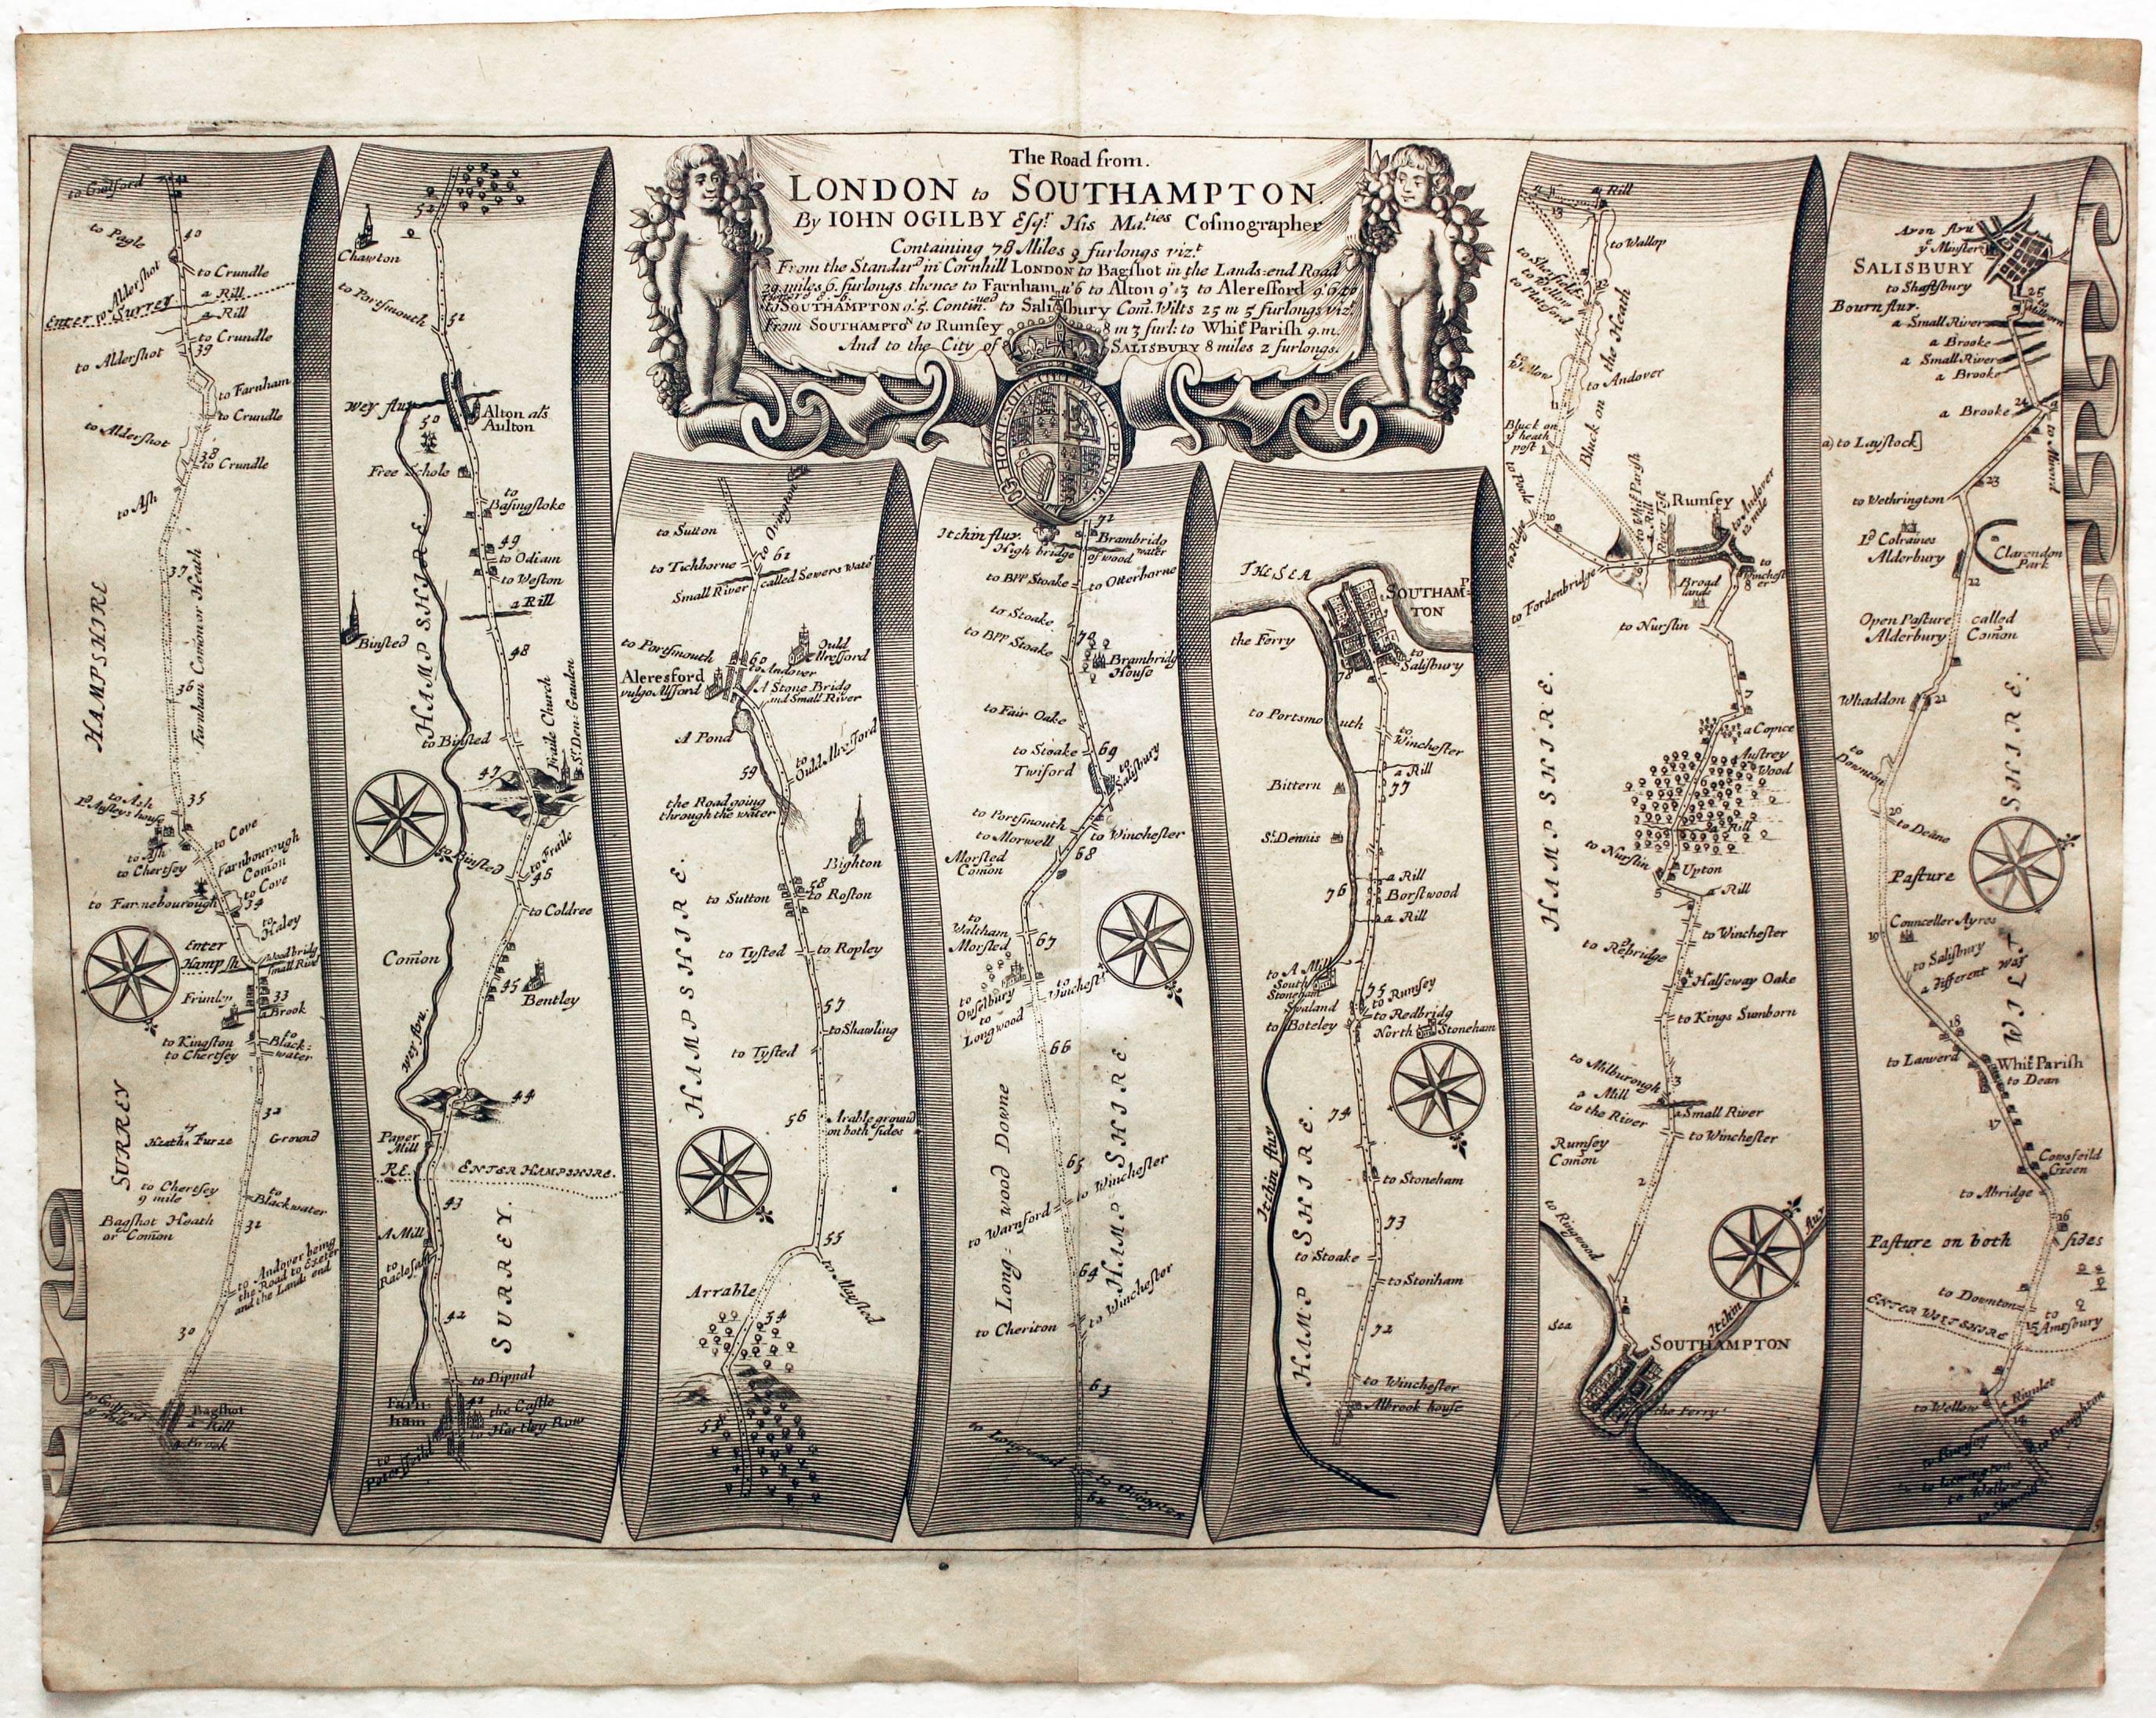 The Road from.
LONDON to SOUTHAMPTON.
By IOHN OGILBY Esqr. His Ma.ties Cosmographer
Containing 78 Miles 3 furlongs vizt.
From the Standard in Cornhill LONDON to Bagshot in the Lands-end Road
29 miles 6 furlongs thence to Farnham 11'6 to Alton 9'3 to Aleresford
to SOUTHAMPTON Continued to Salisbury Com. Wilts 25 m 5 furlongs vizt.
From SOUTHAMPTON to Rumsey 8 m 3 furl: to Whit Parish 9 m.
And to the City of SALISBURY 8 miles 2 furlongs.
HONI SOIT QUI MAL Y PENSE
to Guilford
41
to Pagle
40
to Aldershot
to Crundle
a Rill
Enter Surrey
a Rill
to Crundle
39
to Aldershot
to Farnham
to Crundle
to Aldershot
38
to Crundle
to Ash
37
Farnham Common or Heath
HAMPSHIRE
36
35
to Ash
to Cove
to Ash
to Chertsey
Farnbourough
Comon
to Cove
to Farnebourough
34
to Haley
Enter
Hampsh
Woodbridg
Small River
Frimley
33
a Brook
to Kingston
to Chertsey
to Black=
water
32
SURREY
Heath & Furze
Ground
to Chertsey
9 mile
to Blackwater
Bagshot Heath
or Comon
31
to Andover being
the Road to Exeter
and the Lands end
30
Bagshot
a Rill
a Brook
52
Chawton
to Portsmouth
51
Wey flu.
50
Alton als
Aulton
Free Schole
to
Basingstoke
49
to Odiam
to Weston
a Rill
HAMPSHIRE
Binsted
48
Fraile Church
Sr. Den: Gauden
to Binsted
47
to Binsted
to Fraile
46
to Coldree
Comon
45
Bentley
Wey flu.
44
Paper
Mill
RE.
ENTER HAMPSHIRE.
43
A Mill
42
SURREY.
to Dipnal
Farn
ham
41
the Castle
to Hartley Row
to Petersfeild
to Sutton
to Ovington
61
to Tichborne
Small River called Sewers Water
to Portsmouth
Ould
Alresford
60
to Andover
Aleresford
vulgo Alsford
A Stone Bridg
and Small River
A Pond
59
to Ould Alresford
the Road going
through the water
Bighton
58
to Sutton
to Roston
to Tysted
to Ropley
HAMPSHIRE.
57
to Shawling
to Tysted
56
Arable ground
on both sides
55
to Maysted
Arrable
54
53
Itchin flu.
72
High bridge of wood
Brambridg
water
to BPP Stoake
to Otterborne
to Stoake
70
to BPP Stoake
Brambridg
House
to Fair Oake
to Stoake
69
Twiford
to Salisbury
to Portsmouth
to Morwell
to Winchester
68
Morsted
Comon
to
Waltham
Morsted
67
to
Owselbury
to Winchest
to
Longwood
66
Long: wood Downe
HAMPSHIRE.
65
to Winchester
to Warnford
64
to Cheriton
to Winchester
63
to Longwood
62
THE SEA
SOUTHAMP
TON
the Ferry
to
Salisbury
78
to Portsmouth
to
Winchester
a Rill
Bittern
77
St. Dennis
76
a Rill
Borstwood
a Rill
to A Mill
South
Stoneham
Swaland
75
to Rumsey
to Redbridg
to Boteley
North Stoneham
74
Itchin flu.
HAMPSHIRE.
to Stoneham
73
to Stoake
to Stonham
72
to Winchester
Albrook house
Rill
13
to Wallop
12
to Wellow
to Andover
Bluck on the Heath
11
Bluck on
ye heath
post
to Poole
to Whit Parish
a Rill
Rumsey
to Andover
12 mile
10
to Ridge
to Fordenbridge
Broad
lands
to
Winchest
er
8
to Nurslin
HAMPSHIRE.
7
a Copice
Austrey
Wood
a Rill
to Nurslin
Upton
5
a Rill
to Winchester
to Rebridge
4
Halfeway Oake
to Kings Sumborn
to Milburough
3
a Mill
to the River
a Small River
to Winchester
Rumsey
Comon
2
to Ringwood
1
Sea
Itchin
flu.
SOUTHAMPTON
the Ferry
Avon flu.
ye Minster
SALISBURY
to Shaftsbury
25
Bourn flu.
a Small River
a Brooke
a Small River
a Brooke
24
a Brooke
a) to Laystock]
23
to Wethrington
Ld. Colraines
Alderbury
Clarendon
Park
22
Open Pasture called
Alderbury Comon
Whaddon
21
to
Downton
20
to Deane
Pasture
WILTSHIRE.
Councellor Ayres
19
to Salisbury
a different Way
18
to Lanverd
Whit Parish
to Dean
17
Cowsfeild
Green
to Abridge
16
Pasture on both sides
to Downton
to
Amesbury
15
ENTER WILTSHIRE
Rivulet
to Wellow
14
to Broughton